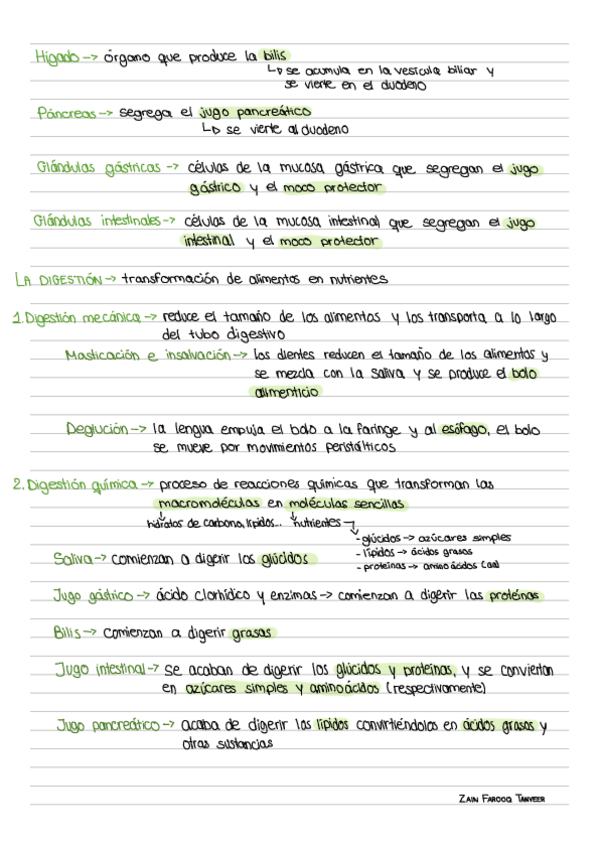 Hígado -> órgano que produce la bilis
↳ se acumula en la vesícula biliar y
se vierte en el duodeno
Páncreas -> segrega el jugo pancreático
↳ se vierte al duodeno
Glándulas gástricas -> células de la mucosa gástrica que segregan el jugo
gástrico y el moco protector
Glándulas intestinales -> células de la mucosa intestinal que segregan el jugo
intestinal y el moco protector
LA DIGESTIÓN -> transformación de alimentos en nutrientes
1. Digestión mecánica -> reduce el tamaño de los alimentos y los transporta a lo largo
del tubo digestivo
Masticación e insalvación -> los dientes reducen el tamaño de los alimentos y
se mezcla con la saliva y se produce el bolo
alimenticio
Deglución -> la lengua empuja el bolo a la faringe y al esófago, el bolo
se mueve por movimientos peristálticos
2. Digestión química -> proceso de reacciones químicas que transforman las
macromoléculas en moléculas sencillas
hidratos de carbono, lípidos... nutrientes ->
- glúcidos -> azúcares simples
- lípidos -> ácidos grasos
- proteínas -> aminoácidos (aa)
Saliva -> comienzan a digerir los glúcidos
Jugo gástrico -> ácido clorhídico y enzimas -> comienzan a digerir las proteínas
Bilis -> comienzan a digerir grasas
Jugo intestinal -> se acaban de digerir los glúcidos y proteínas, y se convierten
en azúcares simples y aminoácidos (respectivamente)
Jugo pancreático -> acaba de digerir las lípidos convirtiéndolos en ácidos grasos y
otras sustancias
ZAIN FAROOQ TANVEER